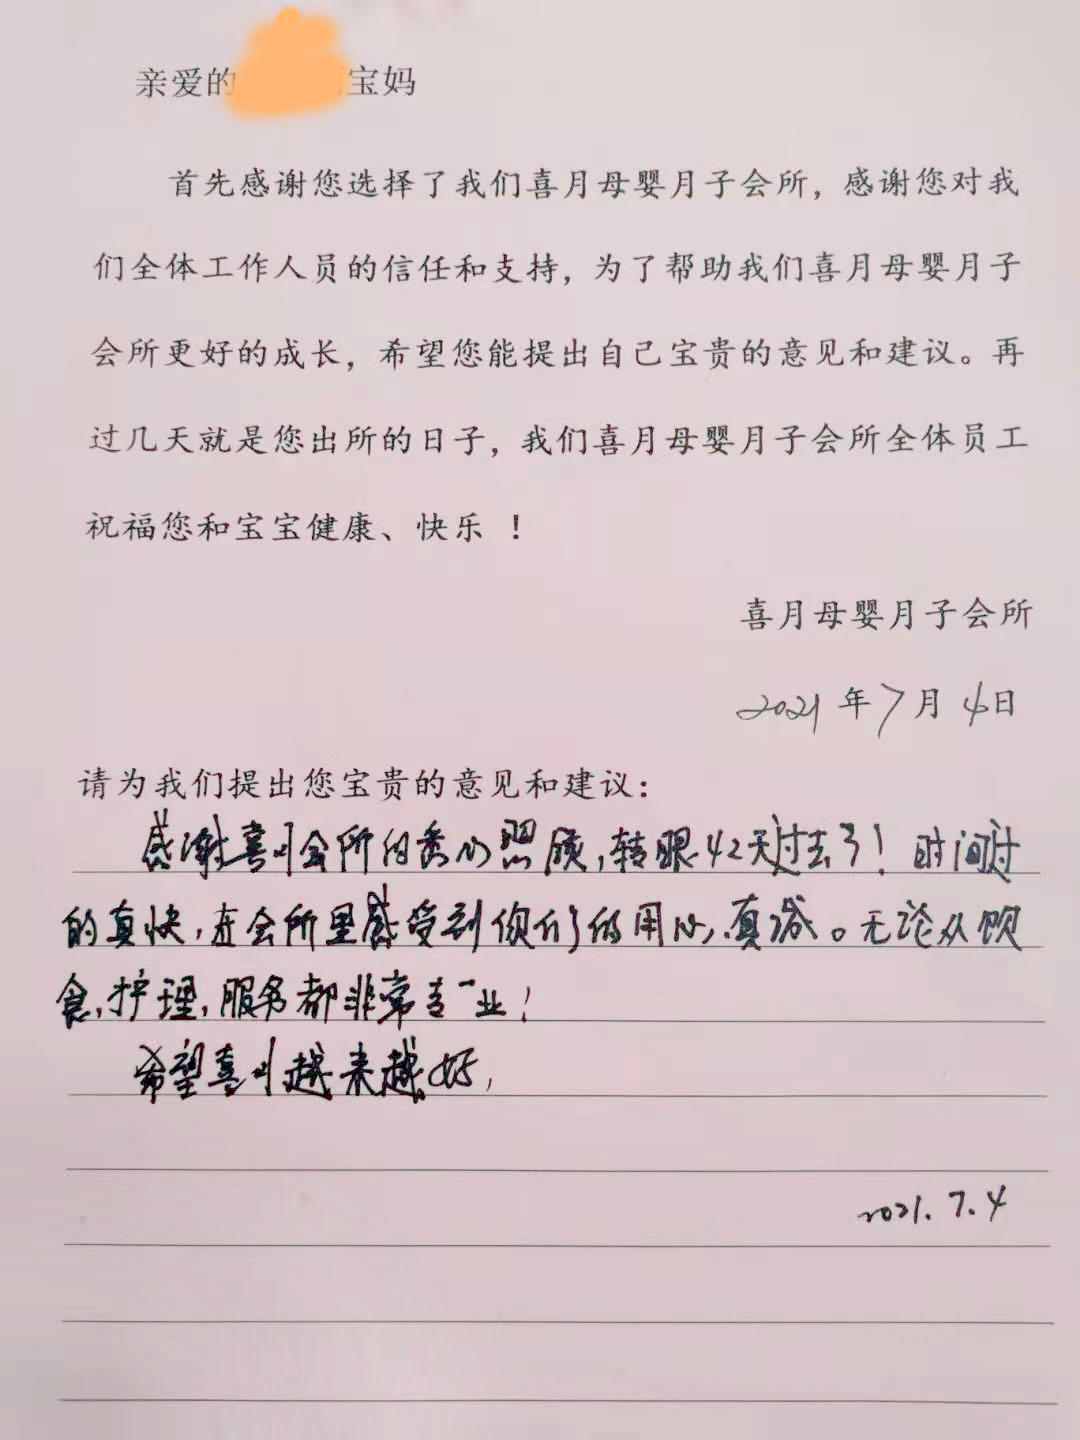 亲爱的 宝妈
首先感谢您选择了我们喜月母婴月子会所，感谢您对我
们全体工作人员的信任和支持，为了帮助我们喜月母婴月子
会所更好的成长，希望您能提出自己宝贵的意见和建议。再
过几天就是您出所的日子，我们喜月母婴月子会所全体员工
祝福您和宝宝健康、快乐 ！
喜月母婴月子会所
2021年7月4日
请为我们提出您宝贵的意见和建议：
感谢喜月会所的悉心照顾，转眼42天过去了！时间过
的真快，在会所里感受到你们的用心，真诚。无论从饮
食，护理，服务都非常专业！
希望喜月越来越好，
2021.7.4